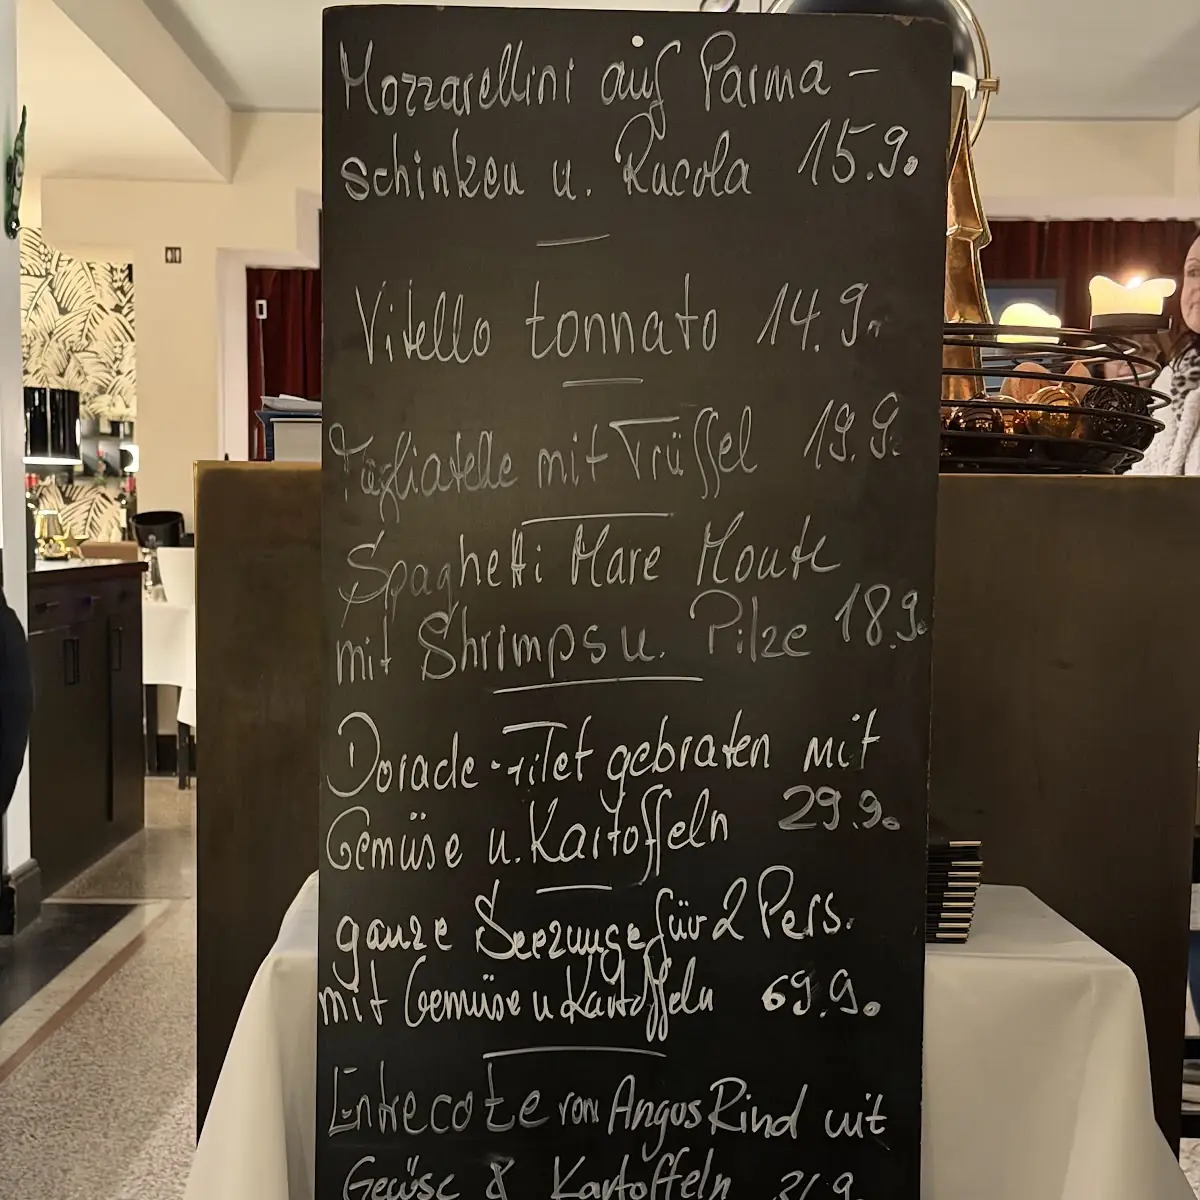 Mozzarellini auf Parma-
schinken u. Rucola 15.9.
Vitello tonnato 14.9.
Tagliatelle mit Trüffel 19.9.
Spaghetti Mare Monte
mit Shrimps u. Pilze 18.9.
Dorade-Filet gebraten mit
Gemüse u. Kartoffeln 29.9.
ganze Seezunge für 2 Pers.
mit Gemüse u Kartoffeln 69.9.
Entrecote vom Angus Rind mit
Gemüse & Kartoffeln